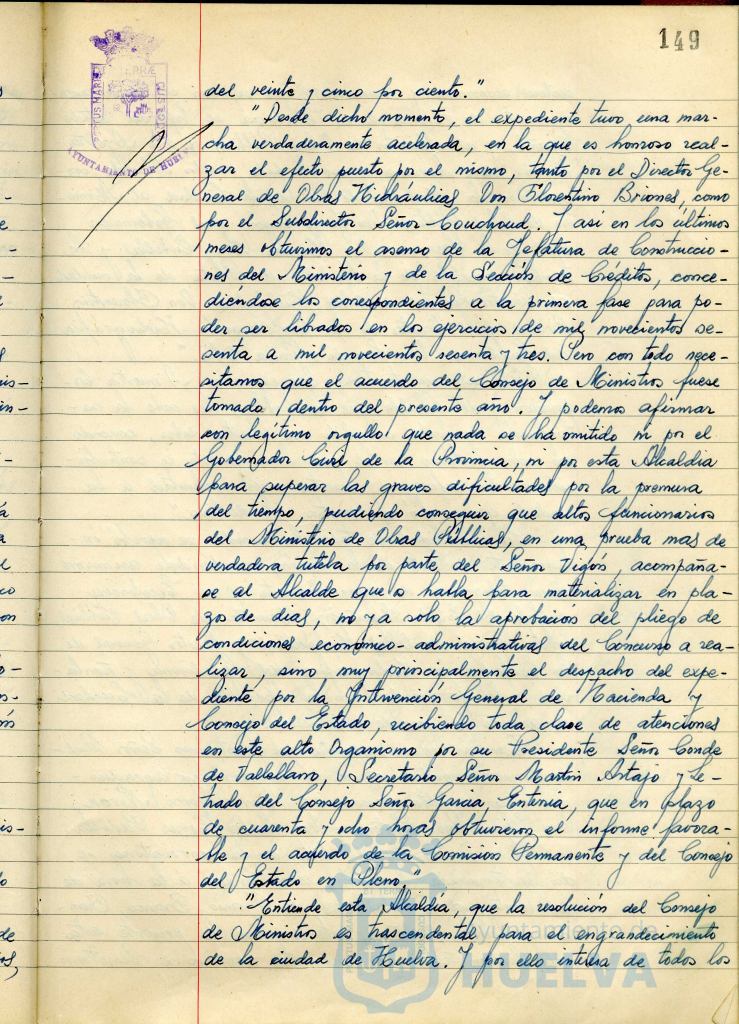 149
PORTUS MARIS
AYUNTAMIENTO DE HUELVA
del veinte y cinco por ciento."
"Desde dicho momento, el expediente tuvo, una mar-
cha verdaderamente acelerada, en la que es honroso real-
zar el efecto puesto por el mismo, tanto por el Director Ge-
neral de Obras Hidráulicas Don Florentino Briones, como
por el Subdirector Señor Couchoud. Y así en los últimos
meses obtuvimos el asenso de la Jefatura de Construccio-
nes del Ministerio y de la Sección de Créditos, conce-
diéndose los correspondientes a la primera fase para po-
der ser librados en los ejercicios de mil novecientos se-
senta a mil novecientos sesenta y tres. Pero con todo nece-
sitamos que el acuerdo del Consejo de Ministros fuese
tomado dentro del presente año. Y podemos afirmar
con legítimo orgullo que nada se ha omitido ni por el
Gobernador Civil de la Provincia, ni por esta Alcaldía
para superar las graves dificultades por la premura
del tiempo, pudiendo conseguir que altos funcionarios
del Ministerio de Obras Públicas, en una prueba mas de
verdadera tutela por parte del Señor Vigón, acompaña-
se al Alcalde que os habla para materializar en pla-
zos de dias, no ya solo la aprobación del pliego de
condiciones económico-administrativas del Concurso a rea-
lizar, sino muy principalmente el despacho del expe-
diente por la Intervención General de Hacienda y
Consejo del Estado, recibiendo toda clase de atenciones
en este alto Organismo por su Presidente Señor Conde
de Vallellano, Secretario Señor Martín Artajo y Le-
trado del Consejo Señor Garcia, Enterria, que en plazo
de cuarenta y ocho horas obtuvieron el informe favora-
ble y el acuerdo de la Comisión Permanente y del Consejo
del Estado en Pleno."
"Entiende esta Alcaldía, que la resolución del Consejo
de Ministros es trascendental para el engrandecimiento
de la ciudad de Huelva. Y por ello interesa de todos los
Ayuntamiento de
HUELVA